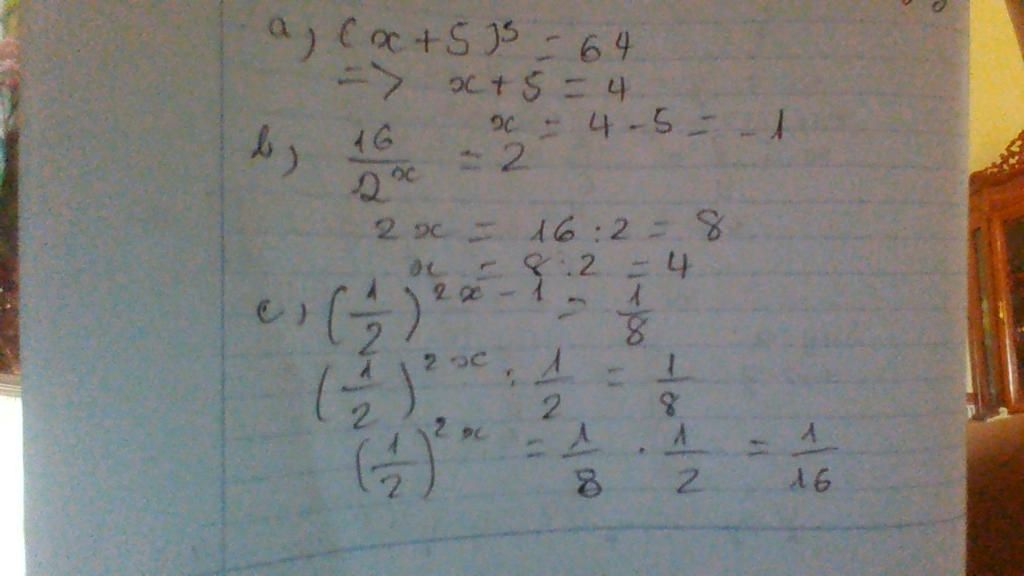 a) (x+5)³ = 64
=> x+5 = 4
x = 4-5 = -1
b) 16/2^x = 2
2x = 16:2 = 8
x = 8:2 = 4
c) (1/2)^(2x-1) = 1/8
(1/2)^(2x) : 1/2 = 1/8
(1/2)^(2x) = 1/8 . 1/2 = 1/16